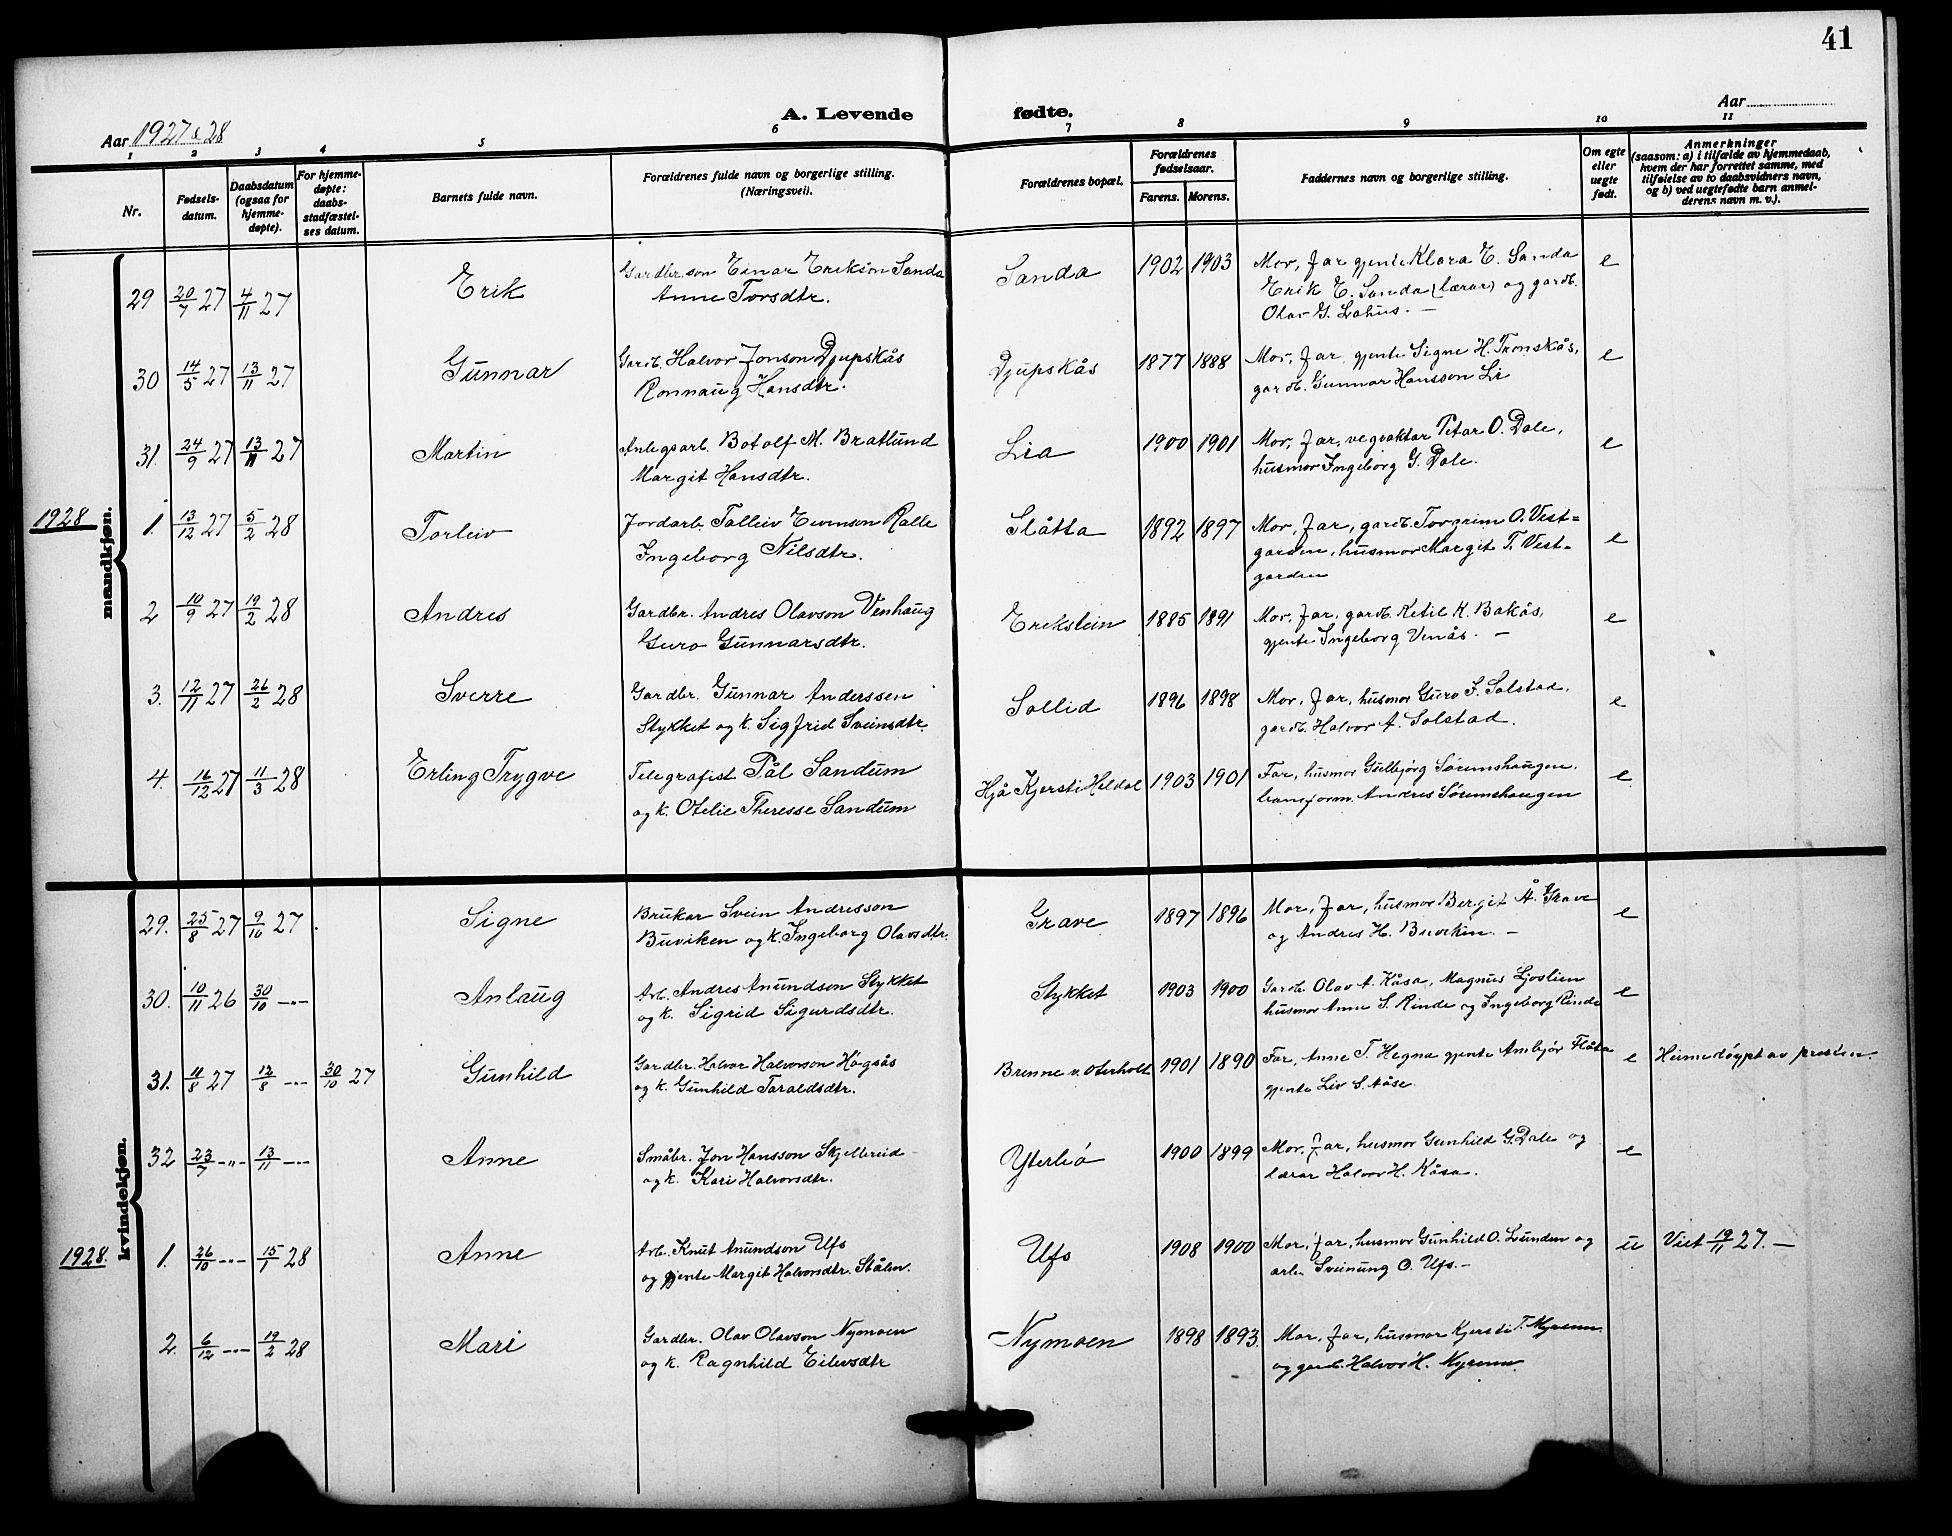 41
A. Levende fødte.
Aar 1927 & 28
Aar
1 2 3 4 5 6 7 8 9 10 11
Nr.
Fødsels-datum.
Daabsdatum (ogsaa for hjemme-døpte).
For hjemme-døpte: daabs-stadfæstel-ses datum.
Barnets fulde navn.
Forældrenes fulde navn og borgerlige stilling. (Næringsvei).
Forældrenes bopæl.
Forældrenes fødselsaar.
Farens. Morens.
Faddernes navn og borgerlige stilling.
Om egte eller uegte født.
Anmerkninger (saasom: a) i tilfælde av hjemmedaab, hvem der har forrettet samme, med tilføielse av to daabsvidners navn, og b) ved uegtefødte barn anmel-derens navn m. v.).
mandkjøn.
29 20/7 27 4/11 27 Erik Gardbr. son Einar Erikson Sanda Sanda 1902 1903 Mor, Far gjente Klara E. Sanda e
Anne Torsdtr. Erik E. Sanda (lærar) og gardb.
Olav G. Lahus. —
30 14/5 27 13/11 27 Gunnar Gardb. Halvor Jonson Djupskås Djupskås 1877 1888 Mor, Far, gjente Signe H. Tronskås, e
Ronnaug Hansdtr. gardb. Gunnar Hansson Li
31. 24/9 27 13/11 27 Martin Anlegsarb. Botolf M. Bratlund Lia 1900 1901 Mor, Far, vegvaktar Petar O. Dale, e
Margit Hansdtr. husmor Ingeborg G. Dale.
1928
1. 13/12 27 5/2 28 Torleiv Jordarb. Talleiv Evenson Ralle Slåtta 1892 1897 Mor, Far, gardb. Torgrim O. Vest= e
Ingeborg Nilsdtr. garden, husmor Margit T. Vest=
garden
2 10/9 27 19/2 28 Andres Gardbr. Andres Olavson Venhaug Erikstein 1885 1891 Mor, Far, gardb. Ketil K. Bakås, e
Guro Gunnarsdtr. gjente Ingeborg Venås. —
3. 12/11 27 26/2 28 Sverre Gardbr. Gunnar Anderssen Sollid 1896 1898 Mor, Far, husmor Guro J. Solstad, e
Stykket og k. Sigfrid Sveinsdtr. gardb. Halvor A. Solstad.
4. 16/12 27 11/3 28 Erling Trygve Telegrafist Pål Sandum Hjå Kjersti Heldal 1903 1901 Far, husmor Gulbjørg Sørumshaugen, e.
og k. Otelie Theresse Sandum transform. Andres Sørumshaugen
kvindekjøn.
29. 25/8 27 9/10 27 Signe Brukar Svein Andresson Grave 1897 1896 Mor, Far, husmor Bergit Å. Grave e
Buviken og k. Ingeborg Olavsdtr. og Andres H. Buvikin. —
30. 10/11 26 30/10 —"— Anlaug Arb. Andres Anundson Stykket Stykket 1903 1900 Gardb. Olav A. Kåsa, Magnus Ljoslien e
og k. Sigrid Sigurdsdtr. husmor Anne S. Rinde og Ingeborg Rinde
31. 11/8 27 12/8 —"— 30/10 27 Gunhild Gardbr. Halvor Halvorson Høgsås Brenne v. Oterholt 1901 1890 Far, Anne T. Hegna gjente Ambjør Flåta e Heimedøypt av presten.
og k. Gunhild Taraldsdtr. gjente Liv S. Åse.
32 23/7 —"— 13/11 —"— Anne Småbr. Jon Hansson Skjellereid Yterbø 1900 1899 Mor, Far, husmor Gunhild G. Dale og e
og k. Kari Halvorsdtr. lærar Halvor H. Kåsa.
1928.
1. 26/10 —"— 15/1 28 Anne Arb. Knut Anundson Ufs Ufs 1908 1900 Mor, Far, husmor Gunhild O. Lunden og u Viet 19/11 27. —
og gjente Margit Halvorsdtr. Stålen. arb. Sveinung O. Ufs. —
2. 6/12 —"— 19/2 28 Mari Gardbr. Olav Olavson Nymoen Nymoen 1898 1893. Mor, Far, husmor Kjersti T. Myrenn
og k. Ragnhild Eilevsdtr og gardb. Halvor H. Myrenn.